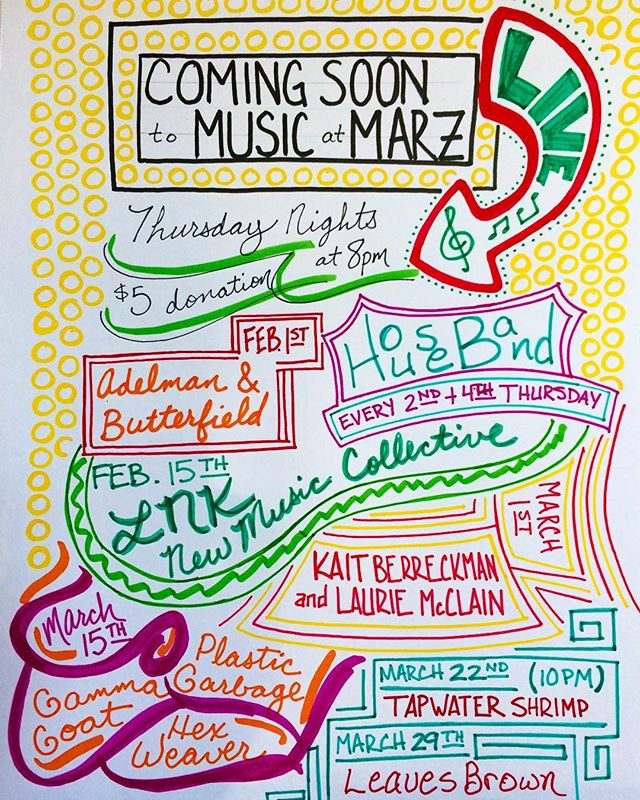 COMING SOON
to MUSIC at MARZ
LIVE
Thursday Nights
at 8pm
$5 donation
FEB. 1ST
Adelman &
Butterfield
House Band
EVERY 2ND + 4TH THURSDAY
FEB. 15TH
LNK
New Music Collective
MARCH
1ST
KAIT BERRECKMAN
and LAURIE McCLAIN
March
15TH
Plastic
Garbage
Gamma
Goat
Hex
Weaver
MARCH 22ND (10PM)
TAPWATER SHRIMP
MARCH 29TH
Leaves Brown